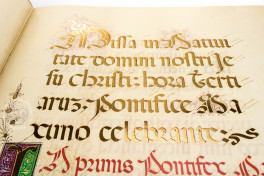 Missa in Nativi
tate domini nostri Je
su christi: hora terti
arum. Pontifice Ma
ximo celebrante:
In primis Pontifex